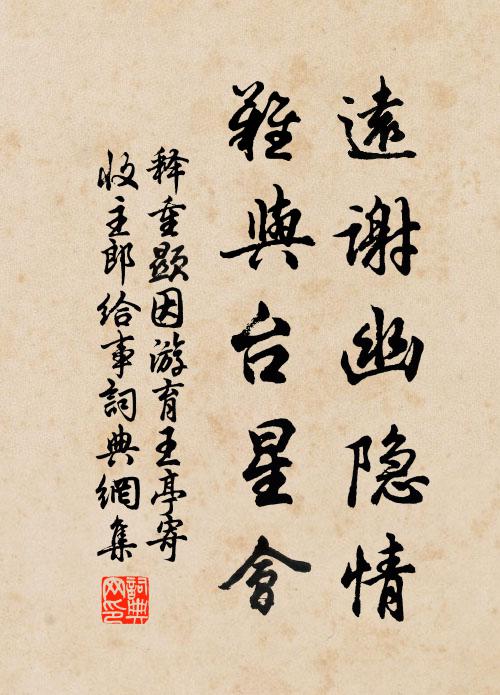 遠謝幽隐情
難與台星會
释重顯因游育王亭寄
收主郎给事詞典網集
詞典网印